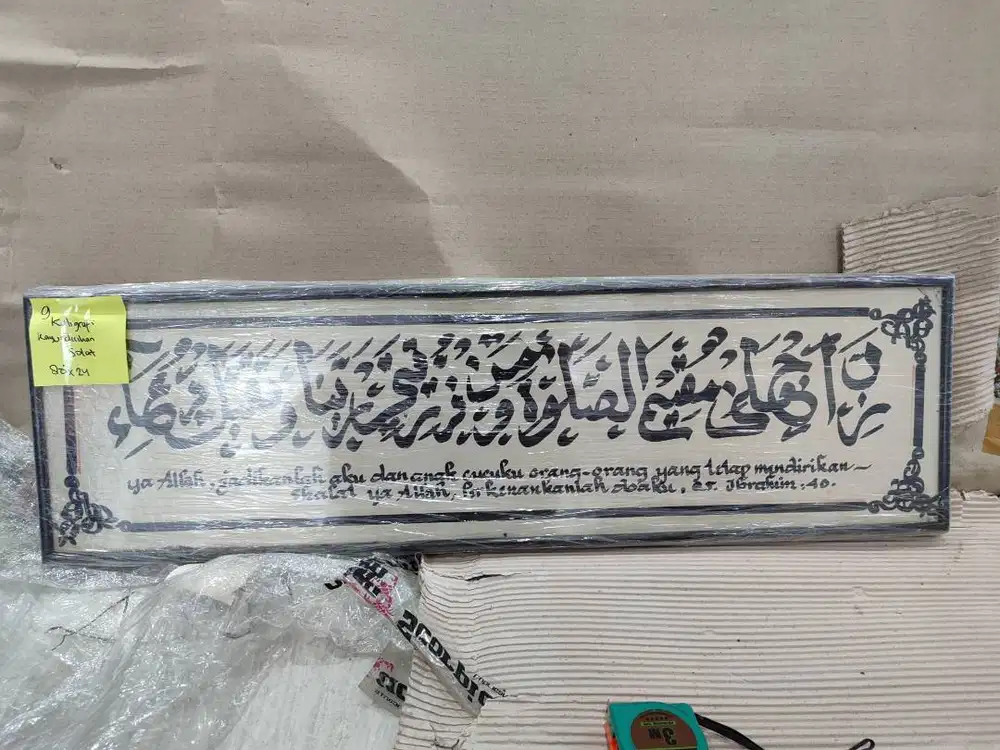 9
Kaligrafi
Solat
80x24
رب اجعلني مقيم الصلوة ومن ذريتي ربنا وتقبل دعاء
ya Allah, jadikanlah aku dan anak cucuku orang-orang yang tetap mendirikan
Shalat ya Allah, Perkenankanlah doaku, Qs. Ibrahim : 40.
3M